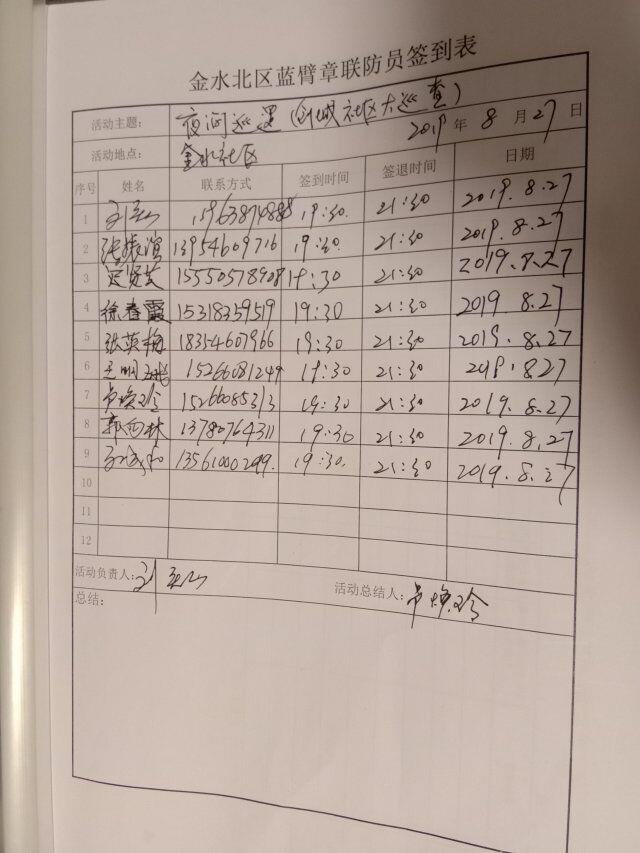 金水北区蓝臂章联防员签到表
活动主题: 夜间巡逻（创城社区大巡查）
2019 年 8 月 27 日
活动地点: 金水社区
序号 姓名 联系方式 签到时间 签退时间 日期
1 19:30 21:30 2019.8.27
2 张振滨 13954609716 19:30 21:30 2019.8.27
3 15550578908 19:30 21:30 2019.8.27
4 徐春霞 15318359519 19:30 21:30 2019.8.27
5 张英梅 18354607966 19:30 21:30 2019.8.27
6 15266081249 19:30 21:30 2019.8.27
7 15266085313 19:30 21:30 2019.8.27
8 郭西林 13780764311 19:30 21:30 2019.8.27
9 13561000299 19:30 21:30 2019.8.27
10
11
12
活动负责人: 活动总结人:
总结: